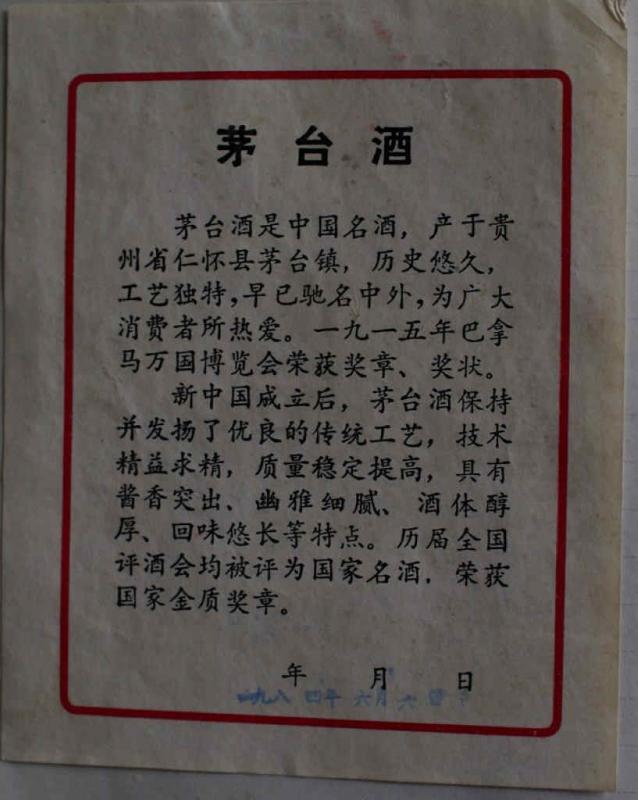 茅台酒
茅台酒是中国名酒，产于贵
州省仁怀县茅台镇，历史悠久，
工艺独特，早已驰名中外，为广大
消费者所热爱。一九一五年巴拿
马万国博览会荣获奖章、奖状。
新中国成立后，茅台酒保持
并发扬了优良的传统工艺，技术
精益求精，质量稳定提高，具有
酱香突出、幽雅细腻、酒体醇
厚、回味悠长等特点。历届全国
评酒会均被评为国家名酒，荣获
国家金质奖章。
年 月 日
一九八四年六月六